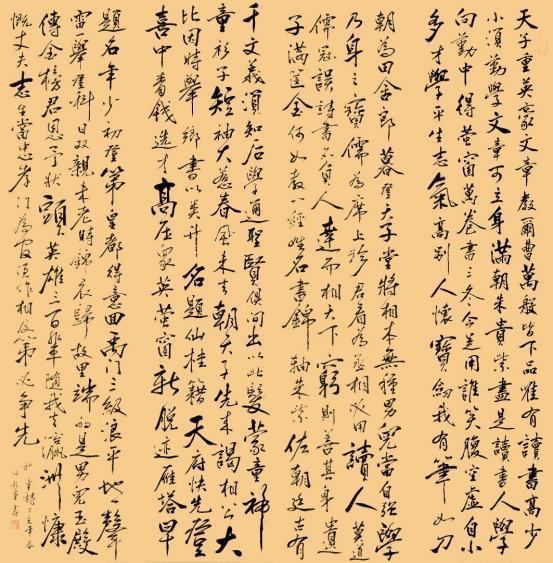 天子重英豪文章教爾曹萬般皆下品唯有讀書高少
小須勤學文章可立身滿朝朱貴紫盡是讀書人學
向勤中得螢窗萬卷書三冬今足用誰笑腹空虛自小
多才學平生志氣高別人懷寶劍我有筆如刀
朝為田舍郎暮登天子堂將相本無種男兒當自強學
乃身之寶儒為席上珍君看為丞相必用讀人莫道
儒冠誤詩書不負人達而相天下窮則善其身遺
子滿籯金何如教一經姓名書錦軸朱紫佐朝廷古有
千文義須知后學通聖賢俱間出以此發蒙童神
童衫子短袖大惹春風未去朝天子先來謁相公大
比因時舉鄉書以類升名題仙桂籍天府快先登
喜中青錢選才高壓眾英螢窗新脫迹雁塔早
題名年少初登第皇都得意回禹門三級浪平地一聲
雷一舉登科日双親未老時錦衣歸故里端的是男兒玉殿
傳金榜君恩予狀頭英雄三百輩隨我步瀛洲慷
慨丈夫志生當忠孝門為官須作相及第必爭先
神童詩